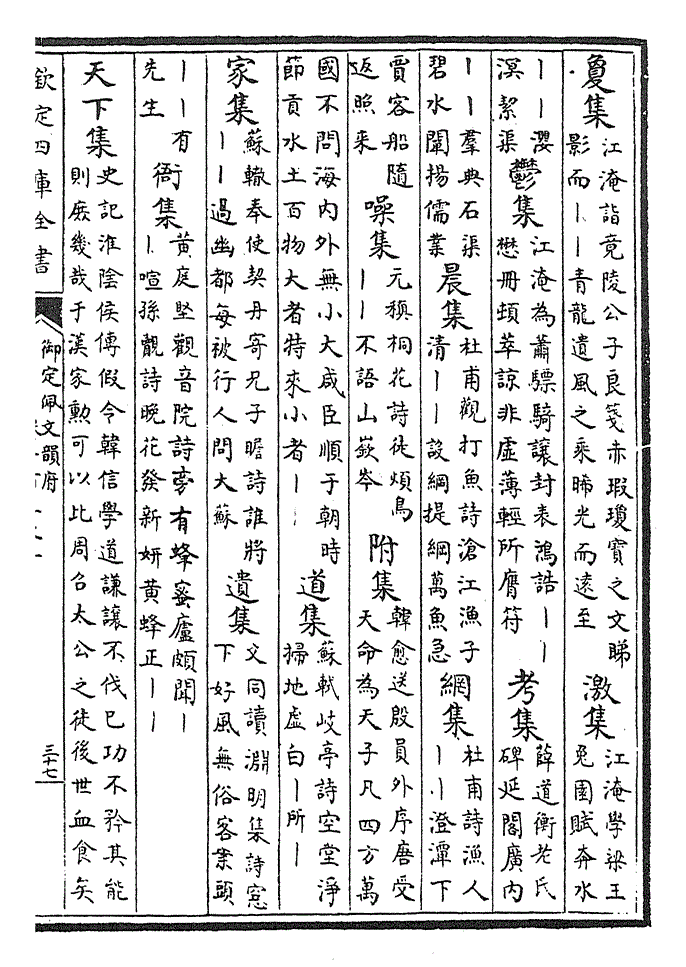 夐集江淹詣竟陵公子良箋赤瑕瓊寶之文睇
影而丨丨青龍遺風之乘晞光而遠至
激集江淹學梁王
兔園賦奔水
丨丨瀴
溟絜渠
鬱集江淹為蕭驃騎讓封表鴻誥丨丨
懋冊頻萃諒非虛薄輕所膺符
考集薛道衡老氏
碑延閣廣內
丨丨羣典石渠
碧水闡揚儒業
晨集杜甫觀打魚詩滄江漁子
清丨丨設網提綱萬魚急
網集杜甫詩漁人
丨丨澄潭下
賈客船隨
返照來
噪集元稹桐花詩徒煩鳥
丨丨不語山嶔岑
附集韓愈送殷員外序唐受
天命為天子凡四方萬
國不問海內外無小大咸臣順于朝時
節貢水土百物大者特來小者丨丨
道集蘇軾岐亭詩空堂淨
掃地虛白丨所丨
家集蘇轍奉使契丹寄兄子瞻詩誰將
丨丨過幽都每被行人問大蘇
遺集文同讀淵明集詩窻
下好風無俗客案頭
丨丨有
先生
衙集黃庭堅觀音院詩旁有蜂蜜廬頗聞丨
丨喧孫覿詩晚花發新妍黃蜂正丨丨
天下集史記淮陰侯傳假令韓信學道謙讓不伐已功不矜其能
則庶幾哉于漢家勳可以比周召太公之徒後世血食矣
欽定四庫全書
御定佩文韻府
三十七